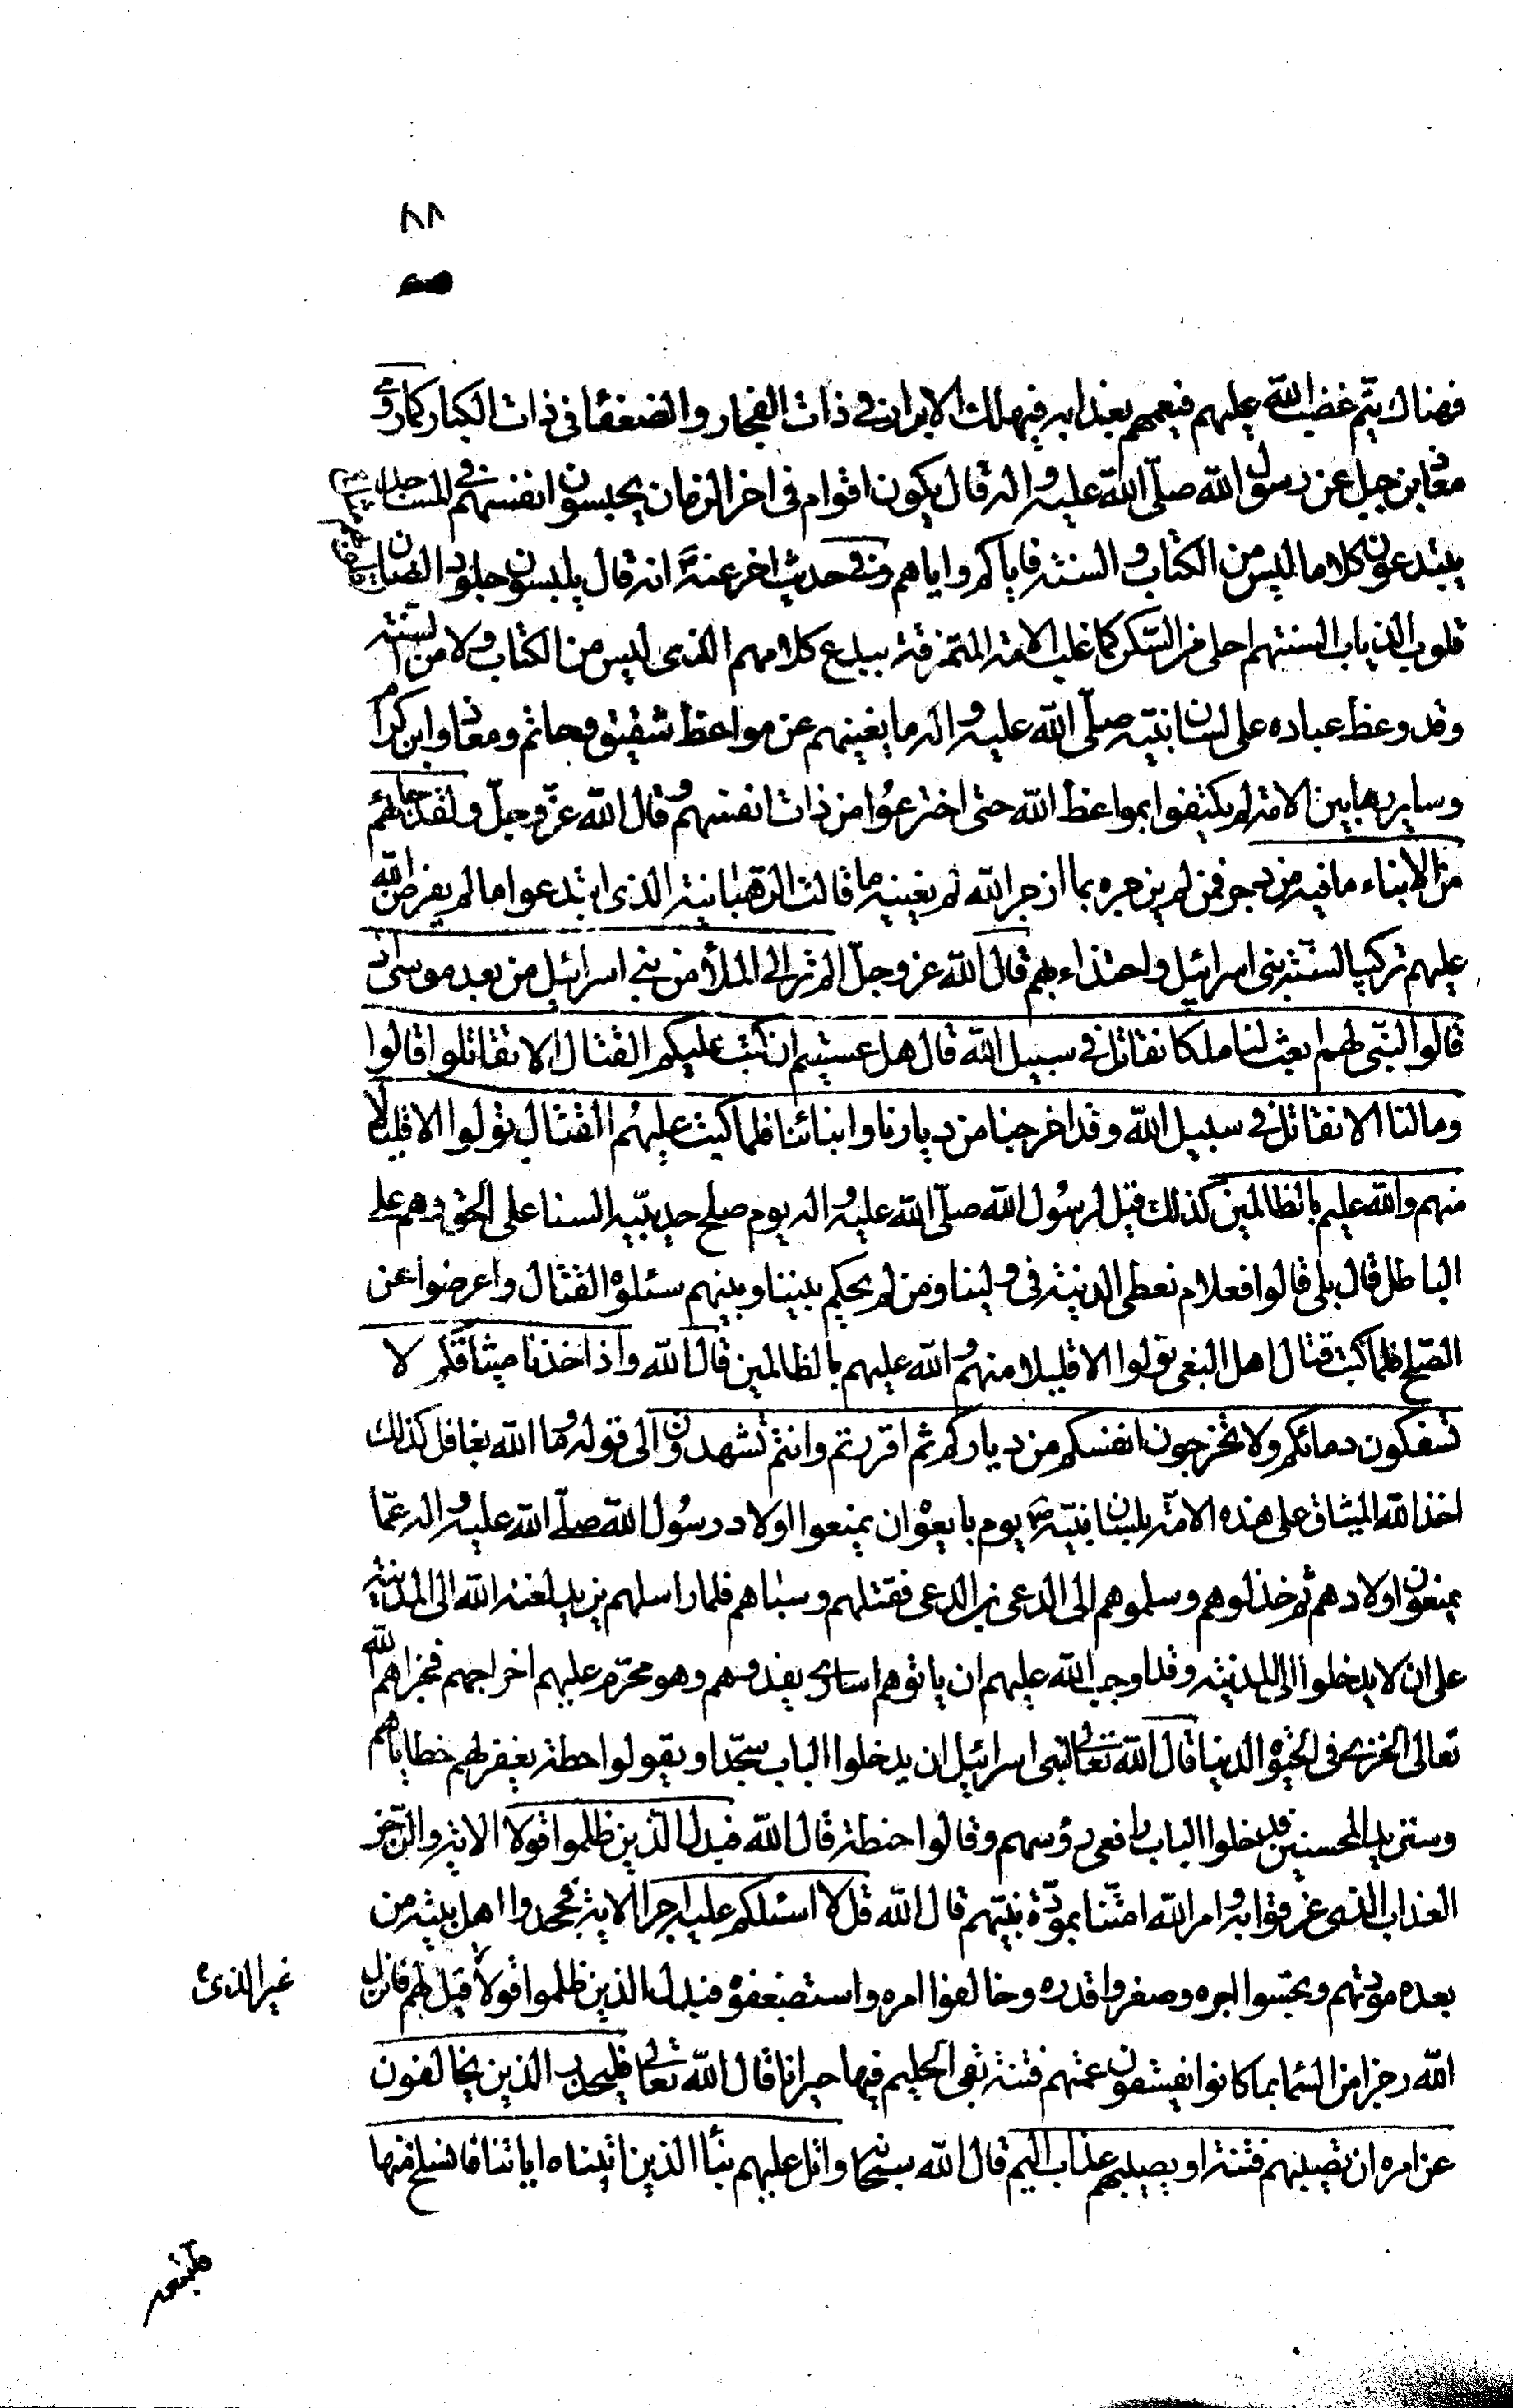 ٨٨
فهناك يتم غضب الله عليهم فيعمهم بعذابه فيهلك الابرار في ذات الفجار والضعفا في ذات الكبار كما روى
معاذ بن جبل عن رسول الله صلى الله عليه واله قال يكون اقوام في اخر الزمان يحبسون انفسهم في المساجد
يبتدعون كلاما ليس من الكتاب والسنة فاياكم واياهم وفي حديث اخر عنه انه قال يلبسون جلود الضان
قلوب الذياب السنتهم احلى من السكر كما غلب الامة المتخرقة ببدع كلامهم الذى ليس من الكتاب ولا من السنة
وقد وعظ عباده على لسان نبيه صلى الله عليه واله ما يغنيهم عن مواعظ شقيق وحاتم ومعاذ وابن كرام
وساير رهابين الامة لم يكتفوا بمواعظ الله حتى اخترعوا من ذات انفسهم وقال الله عز وجل ولقد جائهم
من الانباء ما فيه مزدجر فمن لم يزجره بما ازجر الله لم يغنيه ما قالت الرهبانية الذى ابتدعوا ما لم يفرض الله
عليهم تركيبا لسنة بنى اسرائيل واحتذاء بهم قال الله عز وجل الم تر الى الملأ من بنى اسرائيل من بعد موسى اذ
قالوا لنبي لهم ابعث لنا ملكا نقاتل في سبيل الله قال هل عسيتم ان كتب عليكم القتال الا تقاتلوا قالوا
وما لنا الا نقاتل في سبيل الله وقد اخرجنا من ديارنا وابنائنا فلما كتب عليهم القتال تولوا الا قليلا
منهم والله عليم بالظالمين كذلك قيل لرسول الله صلى الله عليه واله يوم صلح حديبيه السنا على الحق وهم على
الباطل قال بلى قالوا فعلام نعطى الدنية في ديننا ومن لم يحكم بيننا وبينهم سئلوا القتال واعرضوا عن
الصلح فلما كتب قتال اهل البغى تولوا الا قليلا منهم والله عليهم بالظالمين قال الله واذ اخذنا ميثاقكم لا
تسفكون دمائكم ولا تخرجون انفسكم من دياركم ثم اقررتم وانتم تشهدون الى قوله وما الله بغافل كذلك
اخذ الله الميثاق على هذه الامة بلسان نبيه ص يوم بايعوا ان يمنعوا اولاد رسول الله صلى الله عليه واله عما
يمنعون اولادهم ثم خذلوهم وسلموهم الى الدعى بن الدعى فقتلهم وسباهم فلما راسلهم يزيد لعنه الله الى المدينة
على ان لا يدخلوا الى المدينة وقد اوجب الله عليهم ان ياتوهم اسارى يفدوهم وهو محرم عليهم اخراجهم فجزاهم الله
تعالى الخزى في الحيوة الدنيا قال الله تعالى لبنى اسرائيل ان يدخلوا الباب سجدا ويقولوا حطة يغفر لهم خطاياهم
وسنزيد المحسنين فدخلوا الباب رافعى رؤسهم وقالوا حنطة قال الله فبدل الذين ظلموا قولا الاية والرجز
العذاب الذى غرقوا به وامر الله امتنا بمودة نبيهم قال الله قل لا اسئلكم عليه اجرا الاية فجحدوا اهل بيته من
بعده مودتهم وبخسوا اجره وصغروا قدره وخالفوا امره واستضعفوه فبدل الذين ظلموا قولا قيل لهم فانزل
غير الذى
الله رجزا من السما بما كانوا يفسقون عمتهم فتنة تبقى الحليم فيها حيرانا قال الله تعالى فليحذر الذين يخالفون
عن امره ان تصيبهم فتنة او يصيبهم عذاب اليم قال الله سبحانه واتل عليهم نبأ الذين اتيناه اياتنا فانسلخ منها
فاتبعه